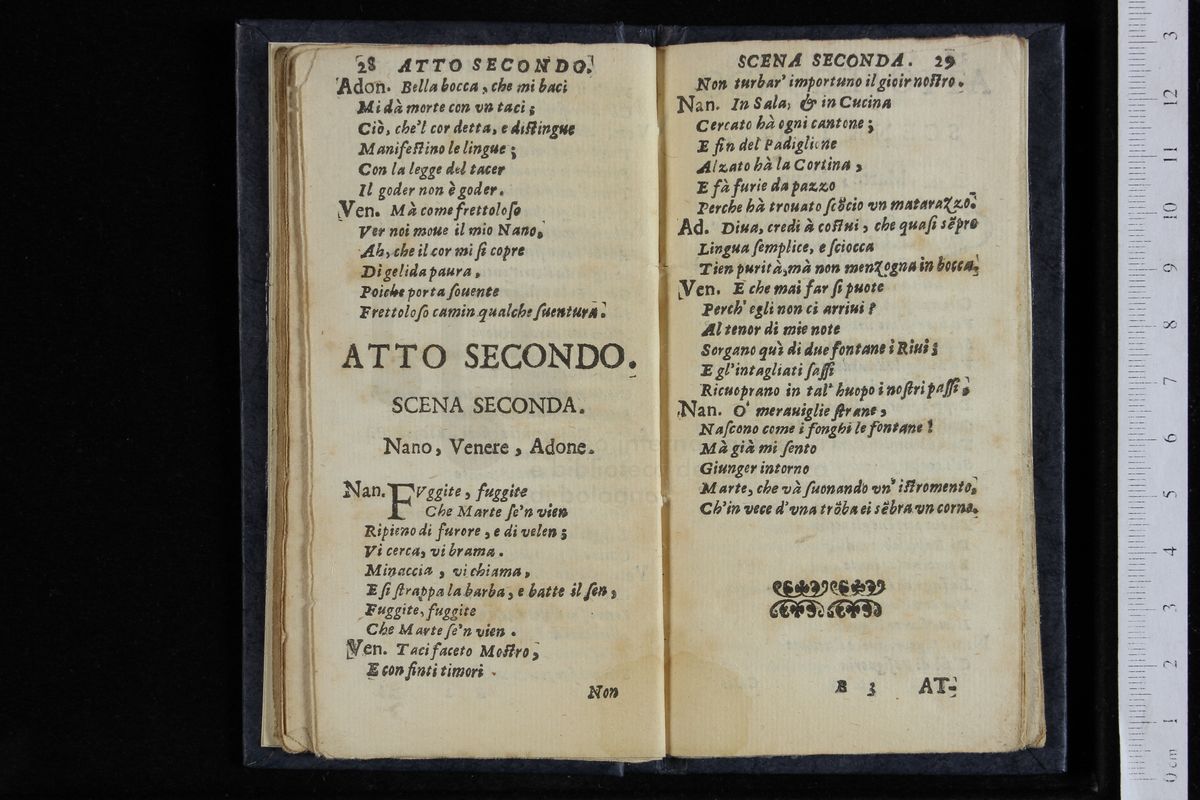 28 ATTO SECONDO.
Adon. Bella bocca, che mi baci
Mi dà morte con vn taci;
Ciò, che'l cor detta, e diſtingue
Manifeſtino le lingue;
Con la legge del tacer
Il goder non è goder.
Ven. Mà come frettoloſo
Ver noi moue il mio Nano,
Ah, che il cor mi ſi copre
Di gelida paura,
Poiche porta ſouente
Frettoloſo camin qualche ſuentura.
ATTO SECONDO.
SCENA SECONDA.
Nano, Venere, Adone.
Nan. FVggite, fuggite
Che Marte ſe'n vien
Ripieno di furore, e di velen;
Vi cerca, vi brama.
Minaccia, vi chiama,
E ſi ſtrappa la barba, e batte il ſen,
Fuggite, fuggite
Che Marte ſe'n vien.
Ven. Taci faceto Moſtro,
E con finti timori
Non
SCENA SECONDA. 29
Non turbar' importuno il gioir noſtro.
Nan. In Sala, & in Cucina
Cercato hà ogni cantone;
E fin del Padiglione
Alzato hà la Cortina,
E fà furie da pazzo
Perche hà trouato ſcõcio vn matarazzo.
Ad. Diua, credi à coſtui, che quaſi sẽpre
Lingua ſemplice, e ſciocca
Tien purità, mà non menzogna in bocca.
Ven. E che mai far ſi puote
Perch' egli non ci arriui?
Al tenor di mie note
Sorgano quì di due fontane i Riui;
E gl'intagliati ſaſſi
Ricuoprano in tal' huopo i noſtri paſſi.
Nan. O' merauiglie ſtrane,
Naſcono come i fonghi le fontane!
Mà già mi ſento
Giunger intorno
Marte, che và ſuonando vn' iſtromento,
Ch'in vece d'vna trõba ei sẽbra vn corno.
B 3 AT-
0 cm 1 2 3 4 5 6 7 8 9 10 11 12 3